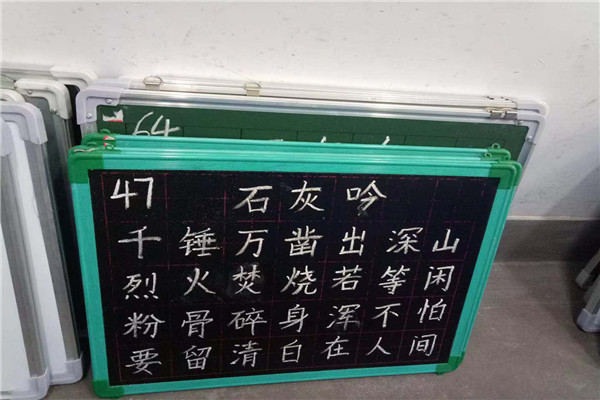 64
47 石灰吟
千锤万凿出深山
烈火焚烧若等闲
粉骨碎身浑不怕
要留清白在人间